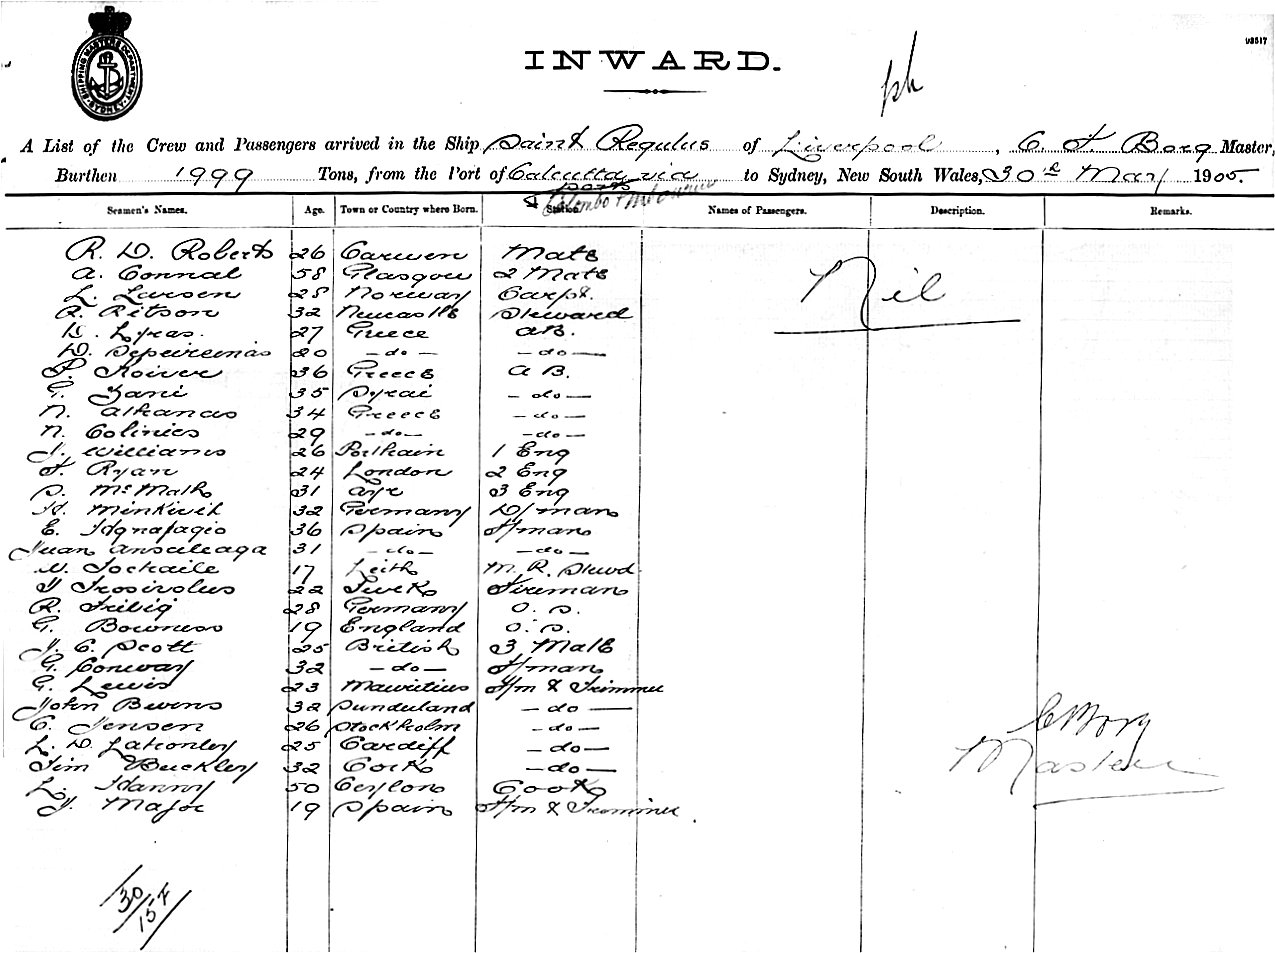 SHIPPING MASTER'S DEPARTMENT SYDNEY
INWARD.
A List of the Crew and Passengers arrived in the Ship Saint Regulus of Liverpool, C. F. Borg Master,
Burthen 1999 Tons, from the Port of Calcutta via to Sydney, New South Wales, 30th May 1900.
ports
Colombo & Melbourne
Seamen's Names. Age. Town or Country where Born. Station. Names of Passengers. Description. Remarks.
R. D. Roberts 26 Mate
A. Connal 58 Glasgow 2 Mate
L. Larsen 28 Norway Carpt.
R. Ritson 32 Newcastle Steward
D. Lyras. 27 Greece A.B.
D. 20 - do - - do -
P. 36 Greece A B.
G. Zani 35 - do -
N. Athanas 34 Greece - do -
N. Colinies 29 - do - - do -
J. Williams 26 1 Eng
F. Ryan 24 London 2 Eng
S. 31 Ayr 3 Eng
32 Germany D/man
E. 36 Spain F/man
Juan 31 - do - - do -
17 Leith M. R. Stewd
22 Fireman
R. 28 Germany O. S.
G. Bowness 19 England O. S.
J. C. Scott 25 British 3 Mate
G. Conway 32 - do - F/man
G. Lewis 23 Mauritius F/m & Trimmer
John 32 Sunderland - do -
C. Jensen 26 Stockholm - do -
L. D. 25 Cardiff - do -
Tim Buckley 32 Cork - do -
L. 50 Ceylon Cook
J. Major 19 Spain F/m & Trimmer
Nil
C F Borg
Master
30/5/